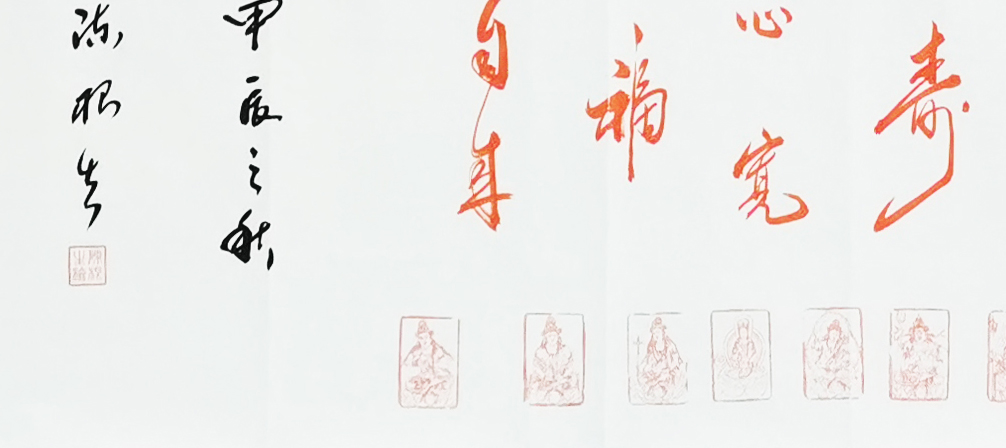 寿
心宽
福
自来
甲辰之秋
陈根生